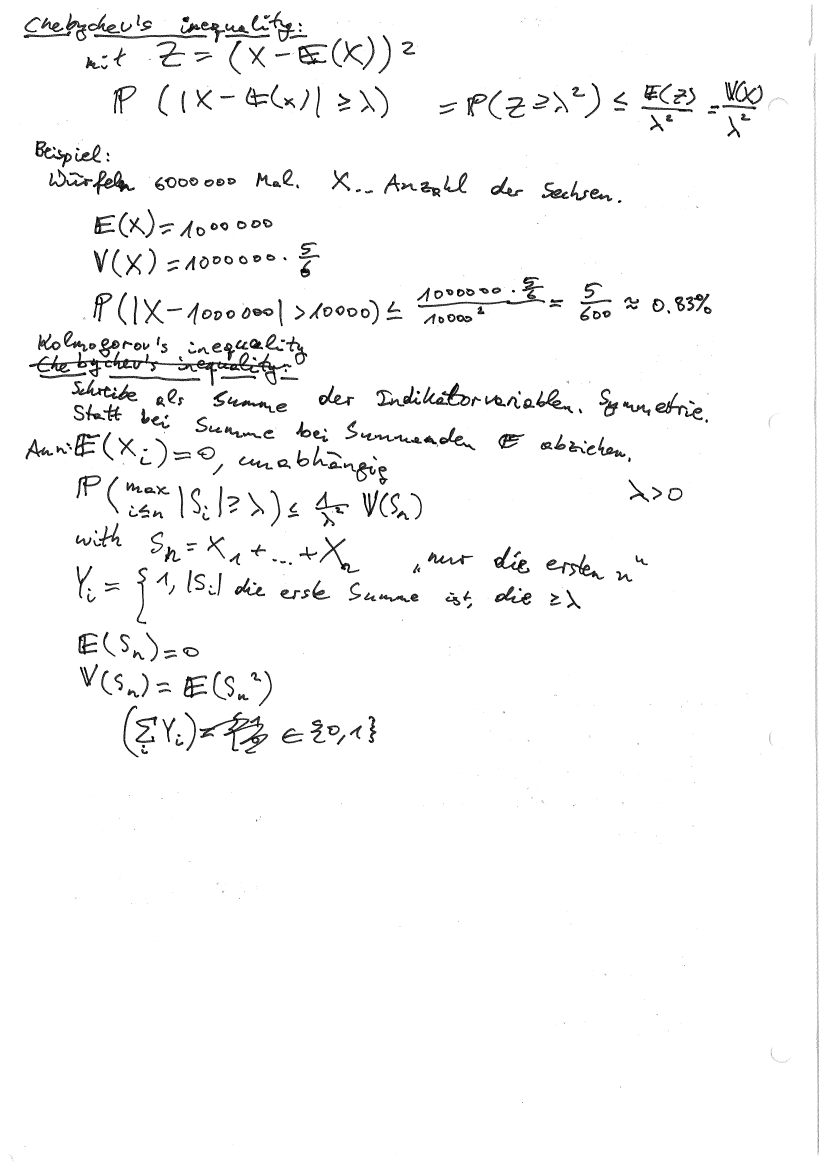 Chebychev's inequality:
mit Z = (X - 𝔼(X))²
ℙ (|X - 𝔼(X)| ≥ λ) = ℙ(Z ≥ λ²) ≤ 𝔼(Z)/λ² = 𝕍(X)/λ²
Beispiel:
Würfeln 6000000 Mal. X... Anzahl der Sechsen.
𝔼(X) = 1000000
𝕍(X) = 1000000 · 5/6
ℙ(|X - 1000000| > 10000) ≤ (1000000 · 5/6)/10000² = 5/600 ≈ 0.83%
Kolmogorov's inequality
Chebychev's inequality:
Schreibe als Summe der Indikatorvariablen. Symmetrie.
Statt bei Summe bei Summanden 𝔼 abziehen.
Ann: 𝔼(X_i) = 0, unabhängig
ℙ(max_{i≤n} |S_i| ≥ λ) ≤ 1/λ² 𝕍(S_n) λ > 0
with S_n = X_1 + ... + X_n „nur die ersten n"
Y_i = { 1, |S_i| die erste Summe ist, die ≥ λ
𝔼(S_n) = 0
𝕍(S_n) = 𝔼(S_n²)
(∑_i Y_i) ∈ {0, 1}